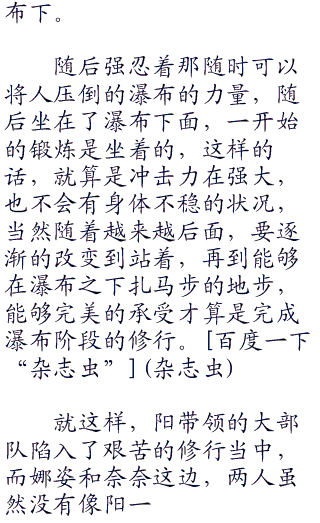 布下。
随后强忍着那随时可以
将人压倒的瀑布的力量，随
后坐在了瀑布下面，一开始
的锻炼是坐着的，这样的
话，就算是冲击力在强大，
也不会有身体不稳的状况，
当然随着越来越后面，要逐
渐的改变到站着，再到能够
在瀑布之下扎马步的地步，
能够完美的承受才算是完成
瀑布阶段的修行。[百度一下
“杂志虫”](杂志虫)
就这样，阳带领的大部
队陷入了艰苦的修行当中，
而娜姿和奈奈这边，两人虽
然没有像阳一